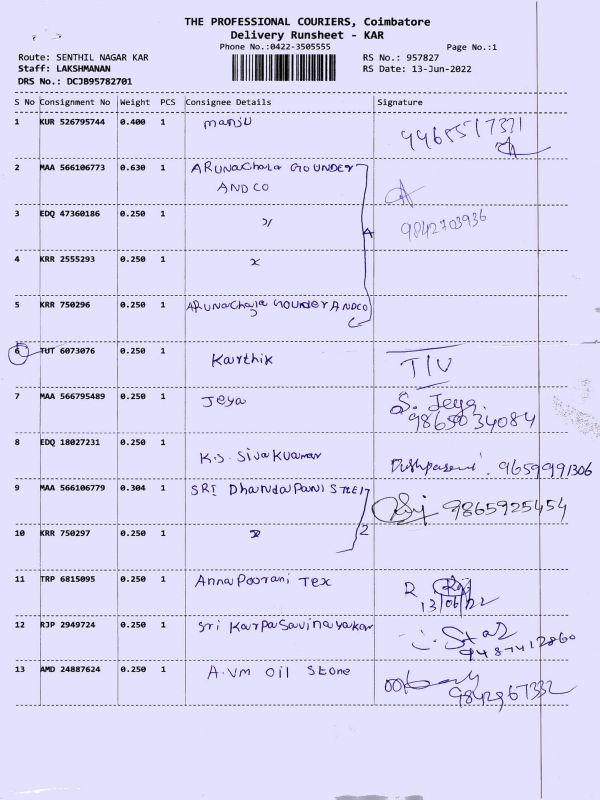 THE PROFESSIONAL COURIERS, Coimbatore
Delivery Runsheet - KAR
Phone No.:0422-3505555
Page No.:1
Route: SENTHIL NAGAR KAR
RS No.: 957827
Staff: LAKSHMANAN
RS Date: 13-Jun-2022
DRS No.: DCJB95782701
S No Consignment No Weight PCS Consignee Details Signature
1 KUR 526795744 0.400 1 manju
2 MAA 566106773 0.630 1 ARUNAChala GOUNDER
AND CO
3 EDQ 47360186 0.250 1 " 9842703936
4 KRR 2555293 0.250 1
5 KRR 750296 0.250 1 ARUNAChala GOUNDER AND CO
6 TUT 6073076 0.250 1 Karthik T/V
7 MAA 566795489 0.250 1 Jeya S. Jeya.
9865034084
8 EDQ 18027231 0.250 1 K.S. 96599 91306
9 MAA 566106779 0.304 1 SRI DhandaPani STEEL 9865925454
10 KRR 750297 0.250 1 2
11 TRP 6815095 0.250 1 AnnaPoorani Tex R
13/06/22
12 RJP 2949724 0.250 1 Sri KarpaSavinayakar
9487412860
13 AMD 24887624 0.250 1 A.Vm Oil Stone
9842967332